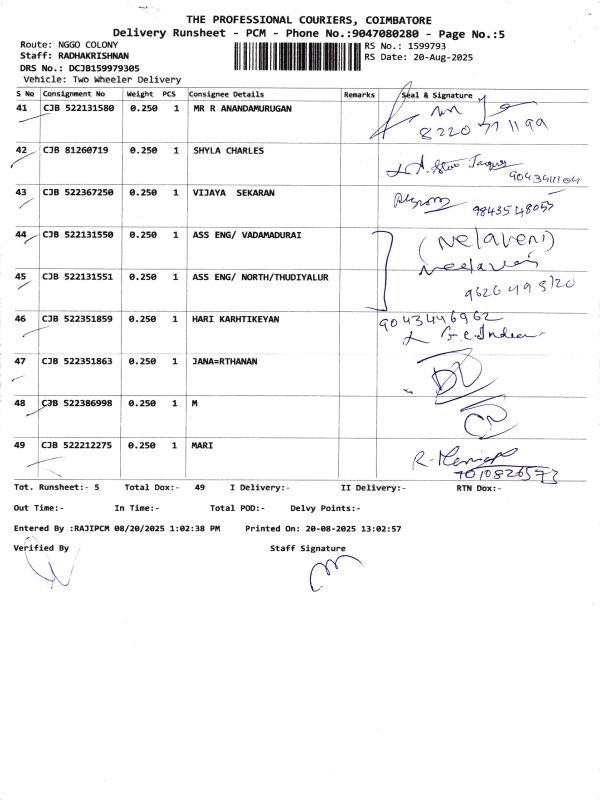 THE PROFESSIONAL COURIERS, COIMBATORE
Delivery Runsheet - PCM - Phone No.:9047080280 - Page No.:5
Route: NGGO COLONY RS No.: 1599793
Staff: RADHAKRISHNAN RS Date: 20-Aug-2025
DRS No.: DCJB159979305
Vehicle: Two Wheeler Delivery
S No Consignment No Weight PCS Consignee Details Remarks Seal & Signature
41 CJB 522131580 0.250 1 MR R ANANDAMURUGAN
8220 771199
42 CJB 81260719 0.250 1 SHYLA CHARLES
43 CJB 522367250 0.250 1 VIJAYA SEKARAN
9843548053
44 CJB 522131550 0.250 1 ASS ENG/ VADAMADURAI (Nelaveni)
45 CJB 522131551 0.250 1 ASS ENG/ NORTH/THUDIYALUR
46 CJB 522351859 0.250 1 HARI KARHTIKEYAN 9043446962
47 CJB 522351863 0.250 1 JANA=RTHANAN
48 CJB 522386998 0.250 1 M
49 CJB 522212275 0.250 1 MARI
Tot. Runsheet:- 5 Total Dox:- 49 I Delivery:- II Delivery:- RTN Dox:-
Out Time:- In Time:- Total POD:- Delvy Points:-
Entered By :RAJIPCM 08/20/2025 1:02:38 PM Printed On: 20-08-2025 13:02:57
Verified By Staff Signature